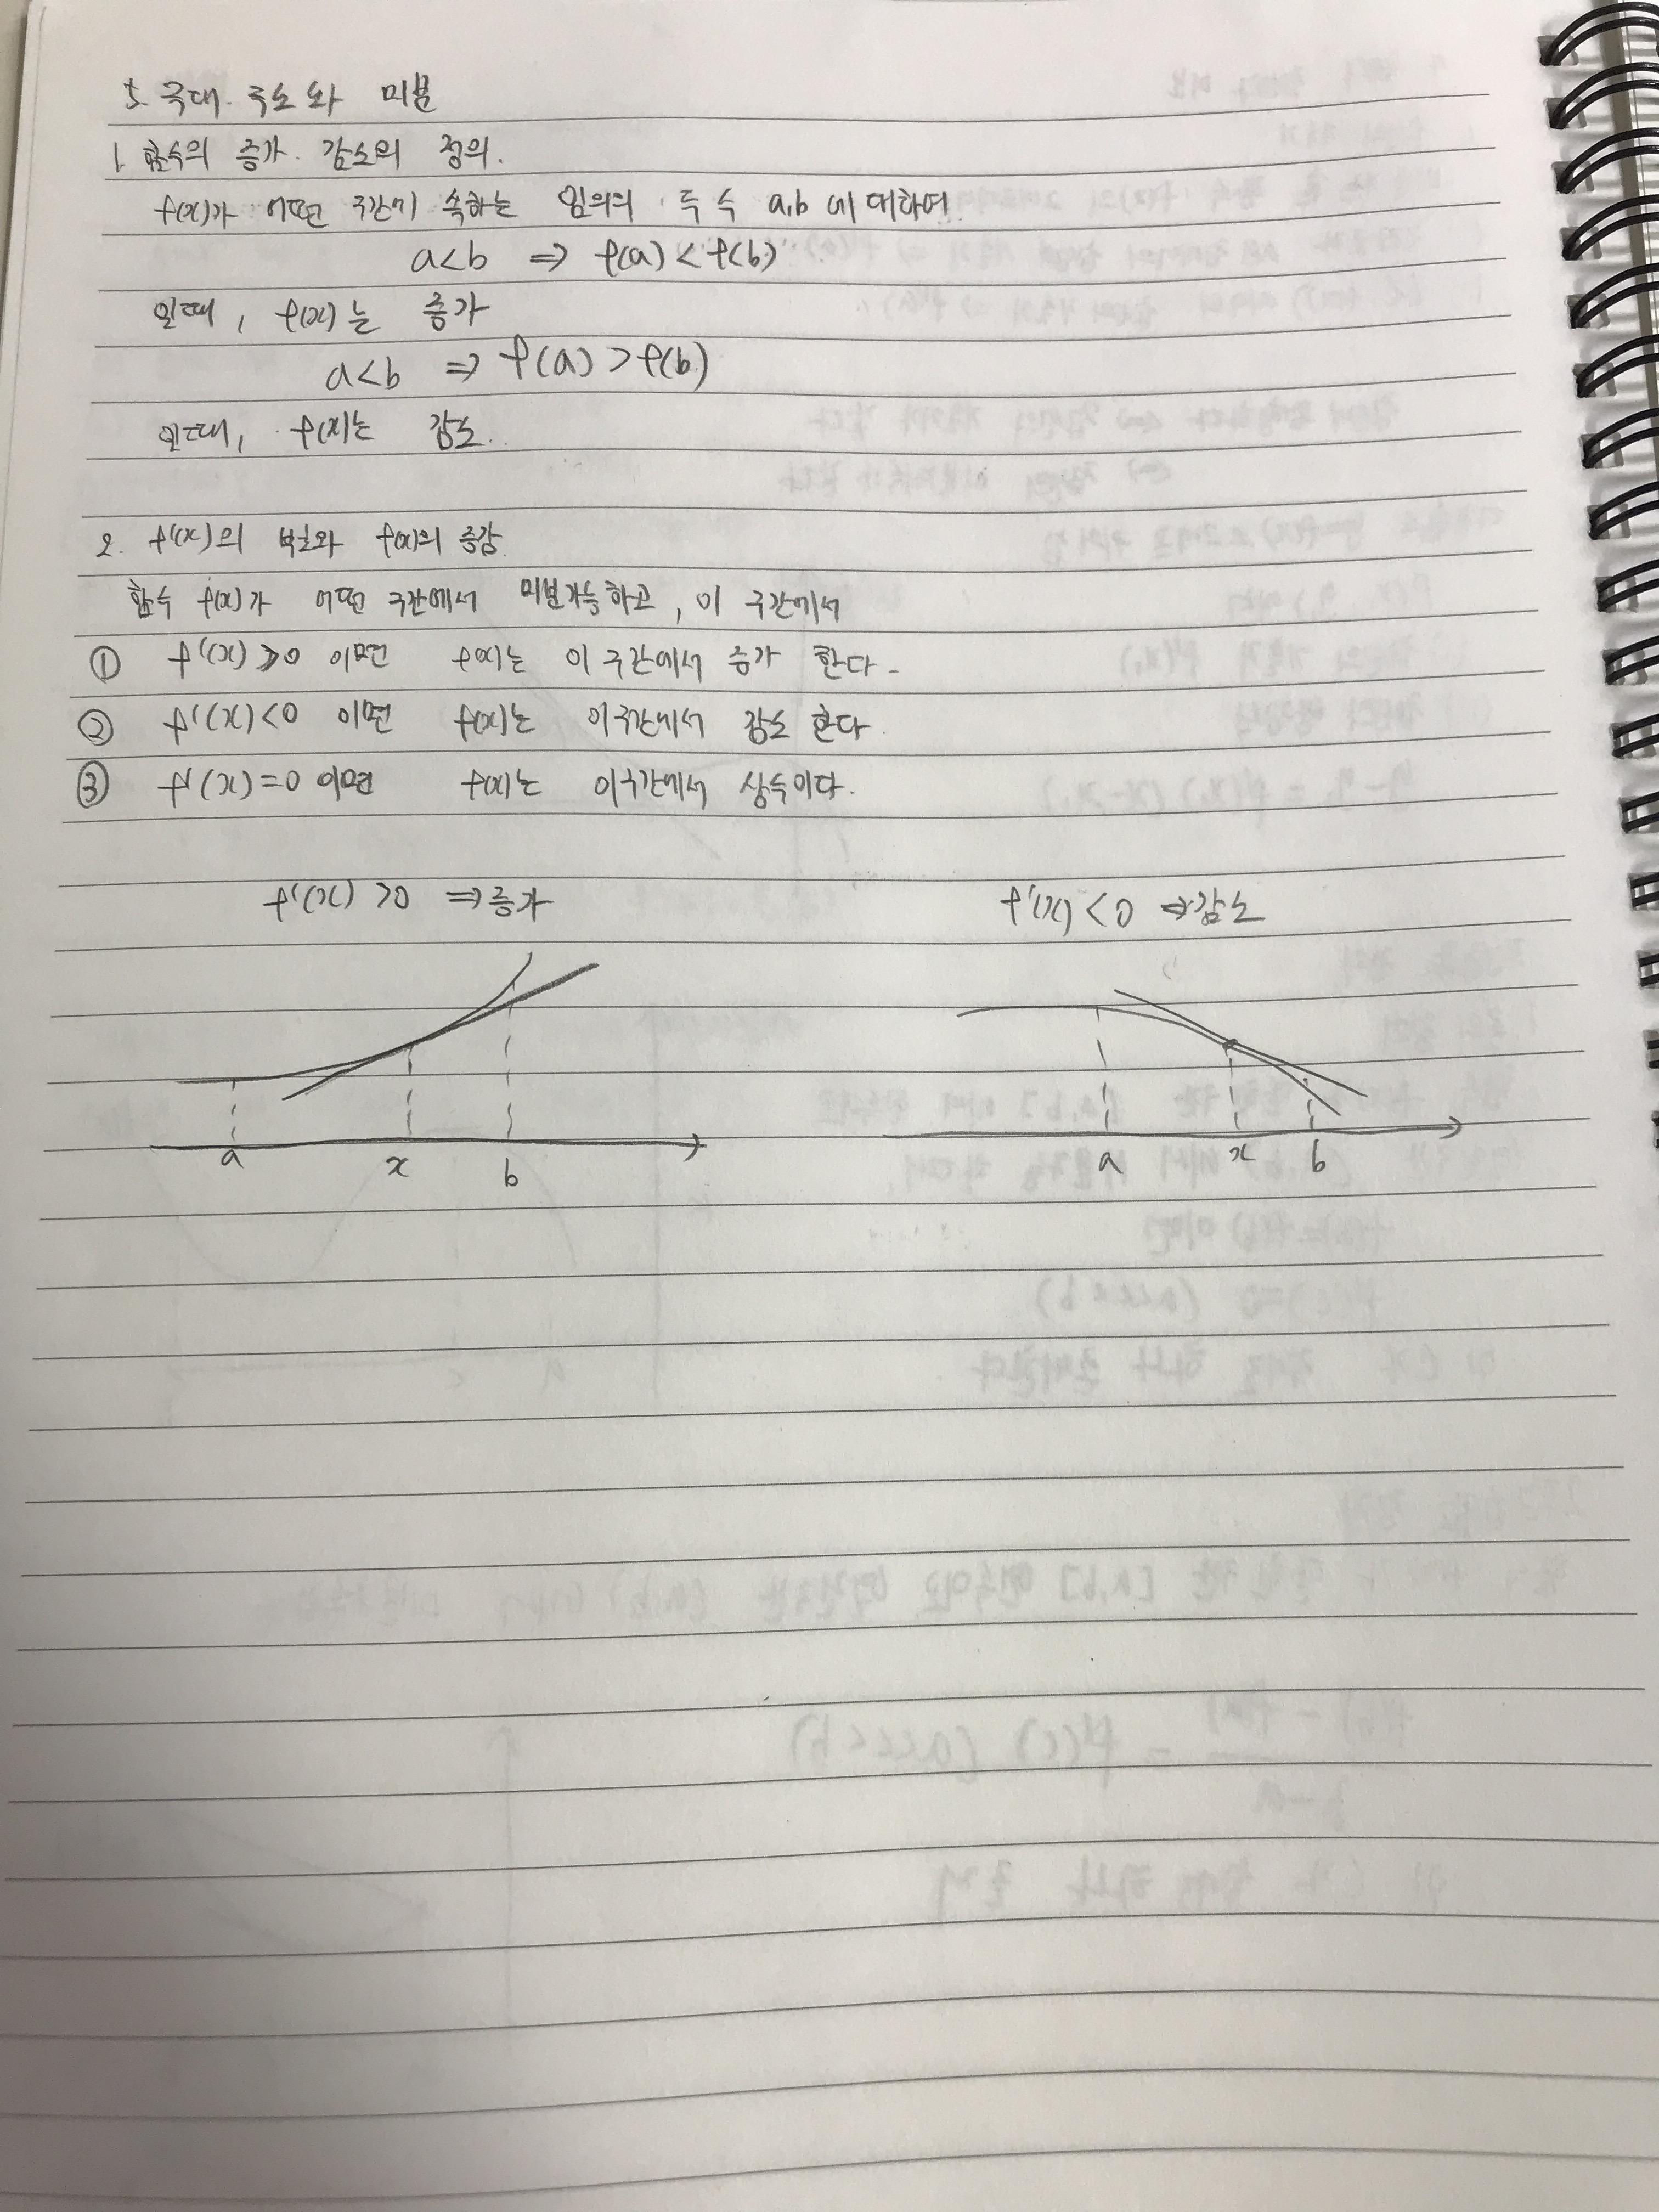 5. 극대. 극소와 미분
1. 함수의 증가. 감소의 정의.
f(x)가 어떤 구간에 속하는 임의의 두 수 a,b에 대하여
a<b ⇒ f(a)<f(b)
일때, f(x)는 증가
a<b ⇒ f(a)>f(b)
일때, f(x)는 감소.
2. f'(x)의 부호와 f(x)의 증감.
함수 f(x)가 어떤 구간에서 미분가능하고, 이 구간에서
① f'(x)>0 이면 f(x)는 이 구간에서 증가 한다.
② f'(x)<0 이면 f(x)는 이구간에서 감소 한다.
③ f'(x)=0 이면 f(x)는 이구간에서 상수이다.
f'(x)>0 ⇒증가 f'(x)<0 ⇒감소
a x b a x b